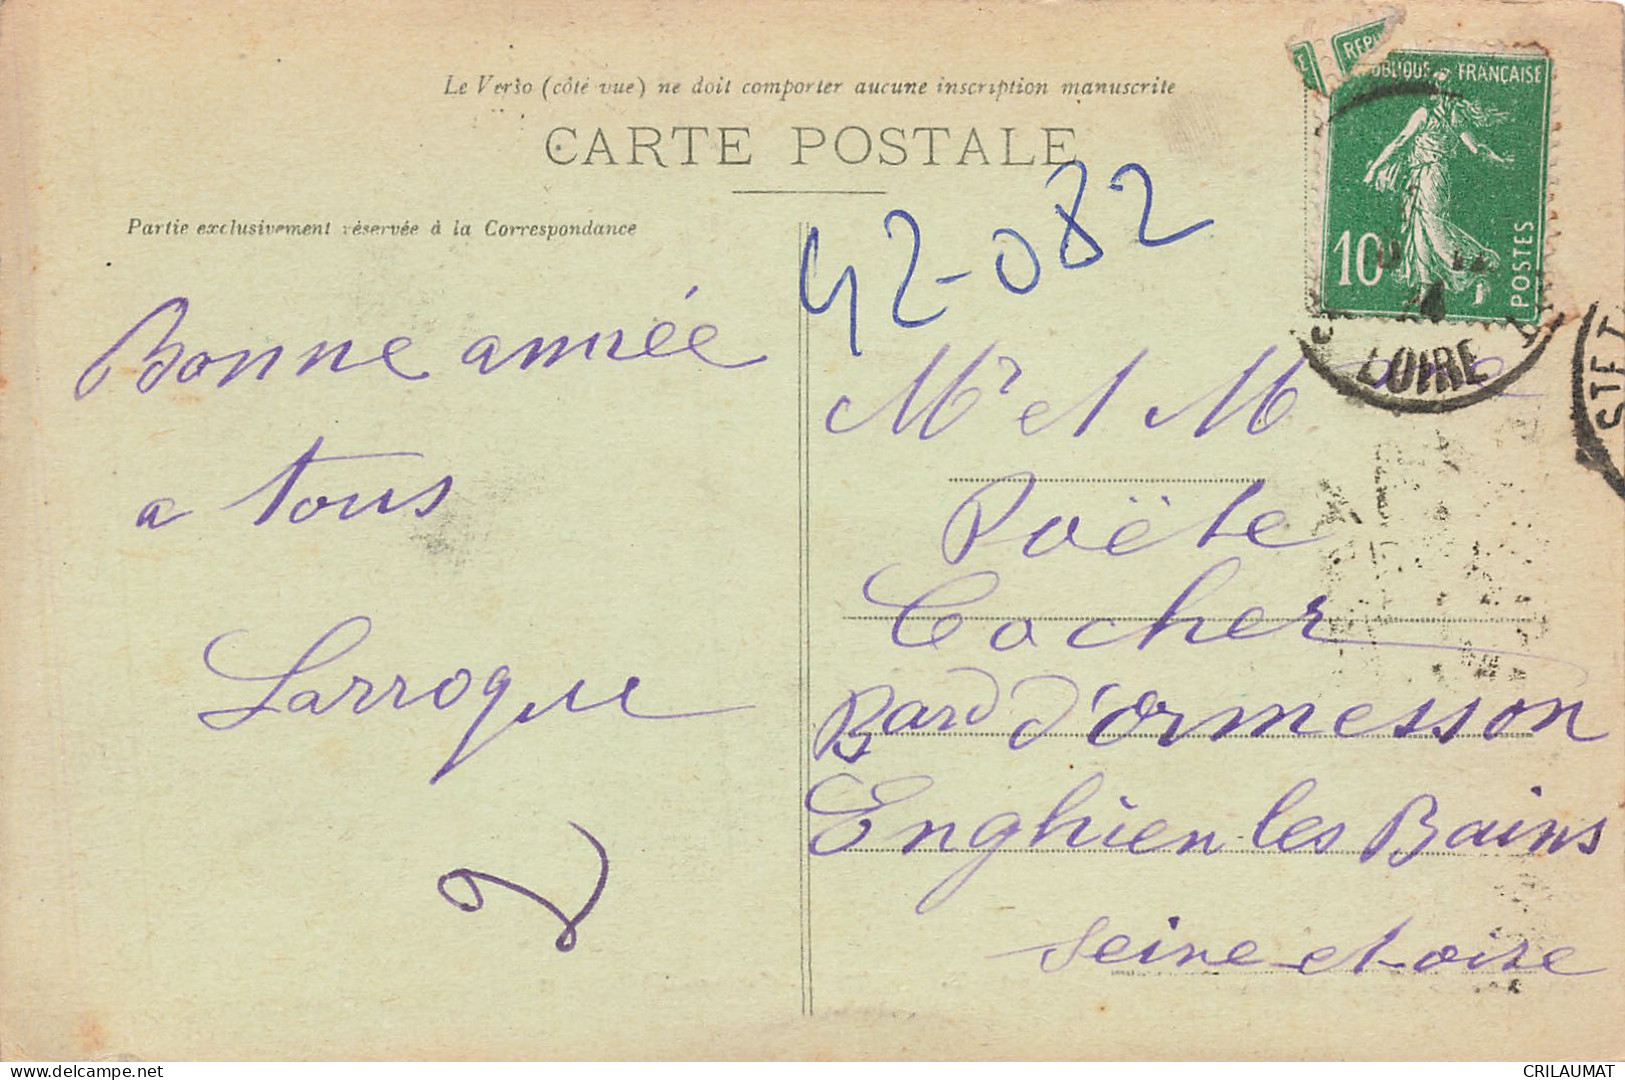 Le Verso (côté vue) ne doit comporter aucune inscription manuscrite
CARTE POSTALE
Partie exclusivement réservée à la Correspondance
42-082
RÉPUBLIQUE FRANÇAISE
10
POSTES
LOIRE
STE
Bonne année
a tous
Larroque
Mr et Mme
Poëte
Cocher
Bard d'ormesson
Enghien les Bains
seine-et-oise
www.delcampe.net
CRILAUMAT